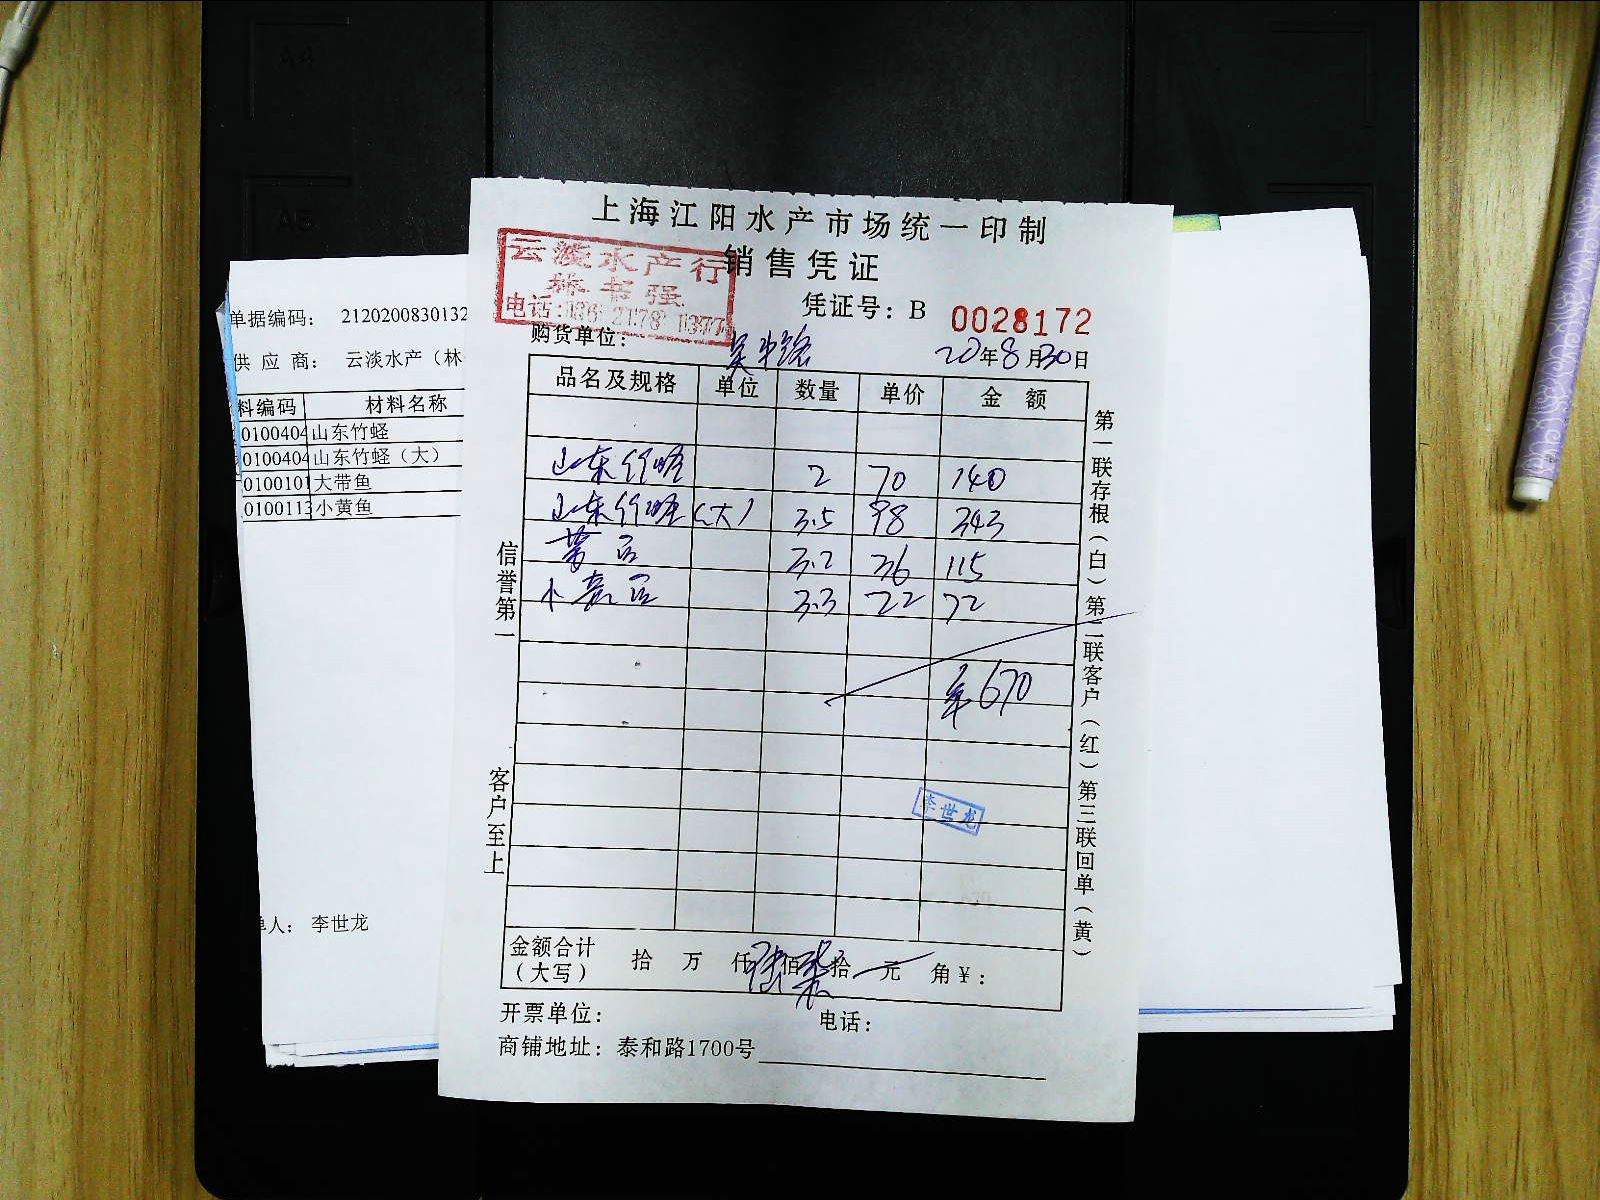 上海江阳水产市场统一印制
销售凭证
云淡水产行
林书强
电话:136 2178 1377
凭证号：B 0028172
购货单位：
20年8月30日
品名及规格 单位 数量 单价 金额
山东竹蛏 2 70 140
山东竹蛏(大) 3.5 98 343
带鱼 3.2 36 115
小黄鱼 3.3 22 72
670
李世龙
金额合计（大写） 拾 万 仟 陆 佰 柒 拾 元 角¥：
开票单位： 电话：
商铺地址：泰和路1700号
信誉第一
客户至上
第一联存根（白）第二联客户（红）第三联回单（黄）
单据编码： 2120200830132
供应商： 云淡水产（林
料编码 材料名称
0100404 山东竹蛏
0100404 山东竹蛏（大）
0100101 大带鱼
010011 小黄鱼
单人： 李世龙
A4
A5